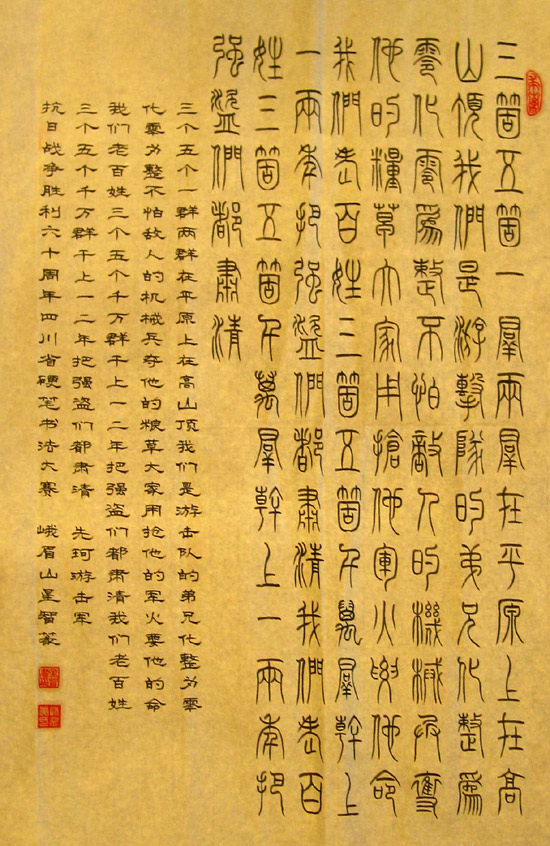 三箇五箇一羣兩羣在平原上在高
山頂我們是游擊隊的弟兄化整爲
零化零爲整不怕敵人的機械兵奪
他的糧草大家用搶他軍火要他命
我們老百姓三箇五箇千萬羣幹上
一兩年把强盜們都肅清我們老百
姓三箇五箇千萬羣幹上一兩年把
强盜們都肅清
三个五个一群两群在平原上在高山顶我们是游击队的弟兄化整为零
化零为整不怕敌人的机械兵夺他的粮草大家用抢他的军火要他的命
我们老百姓三个五个千万群干上一二年把强盗们都肃清我们老百姓
三个五个千万群干上一二年把强盗们都肃清 先珂游击军
抗日战争胜利六十周年四川省硬笔书法大赛 峨眉山星智篆